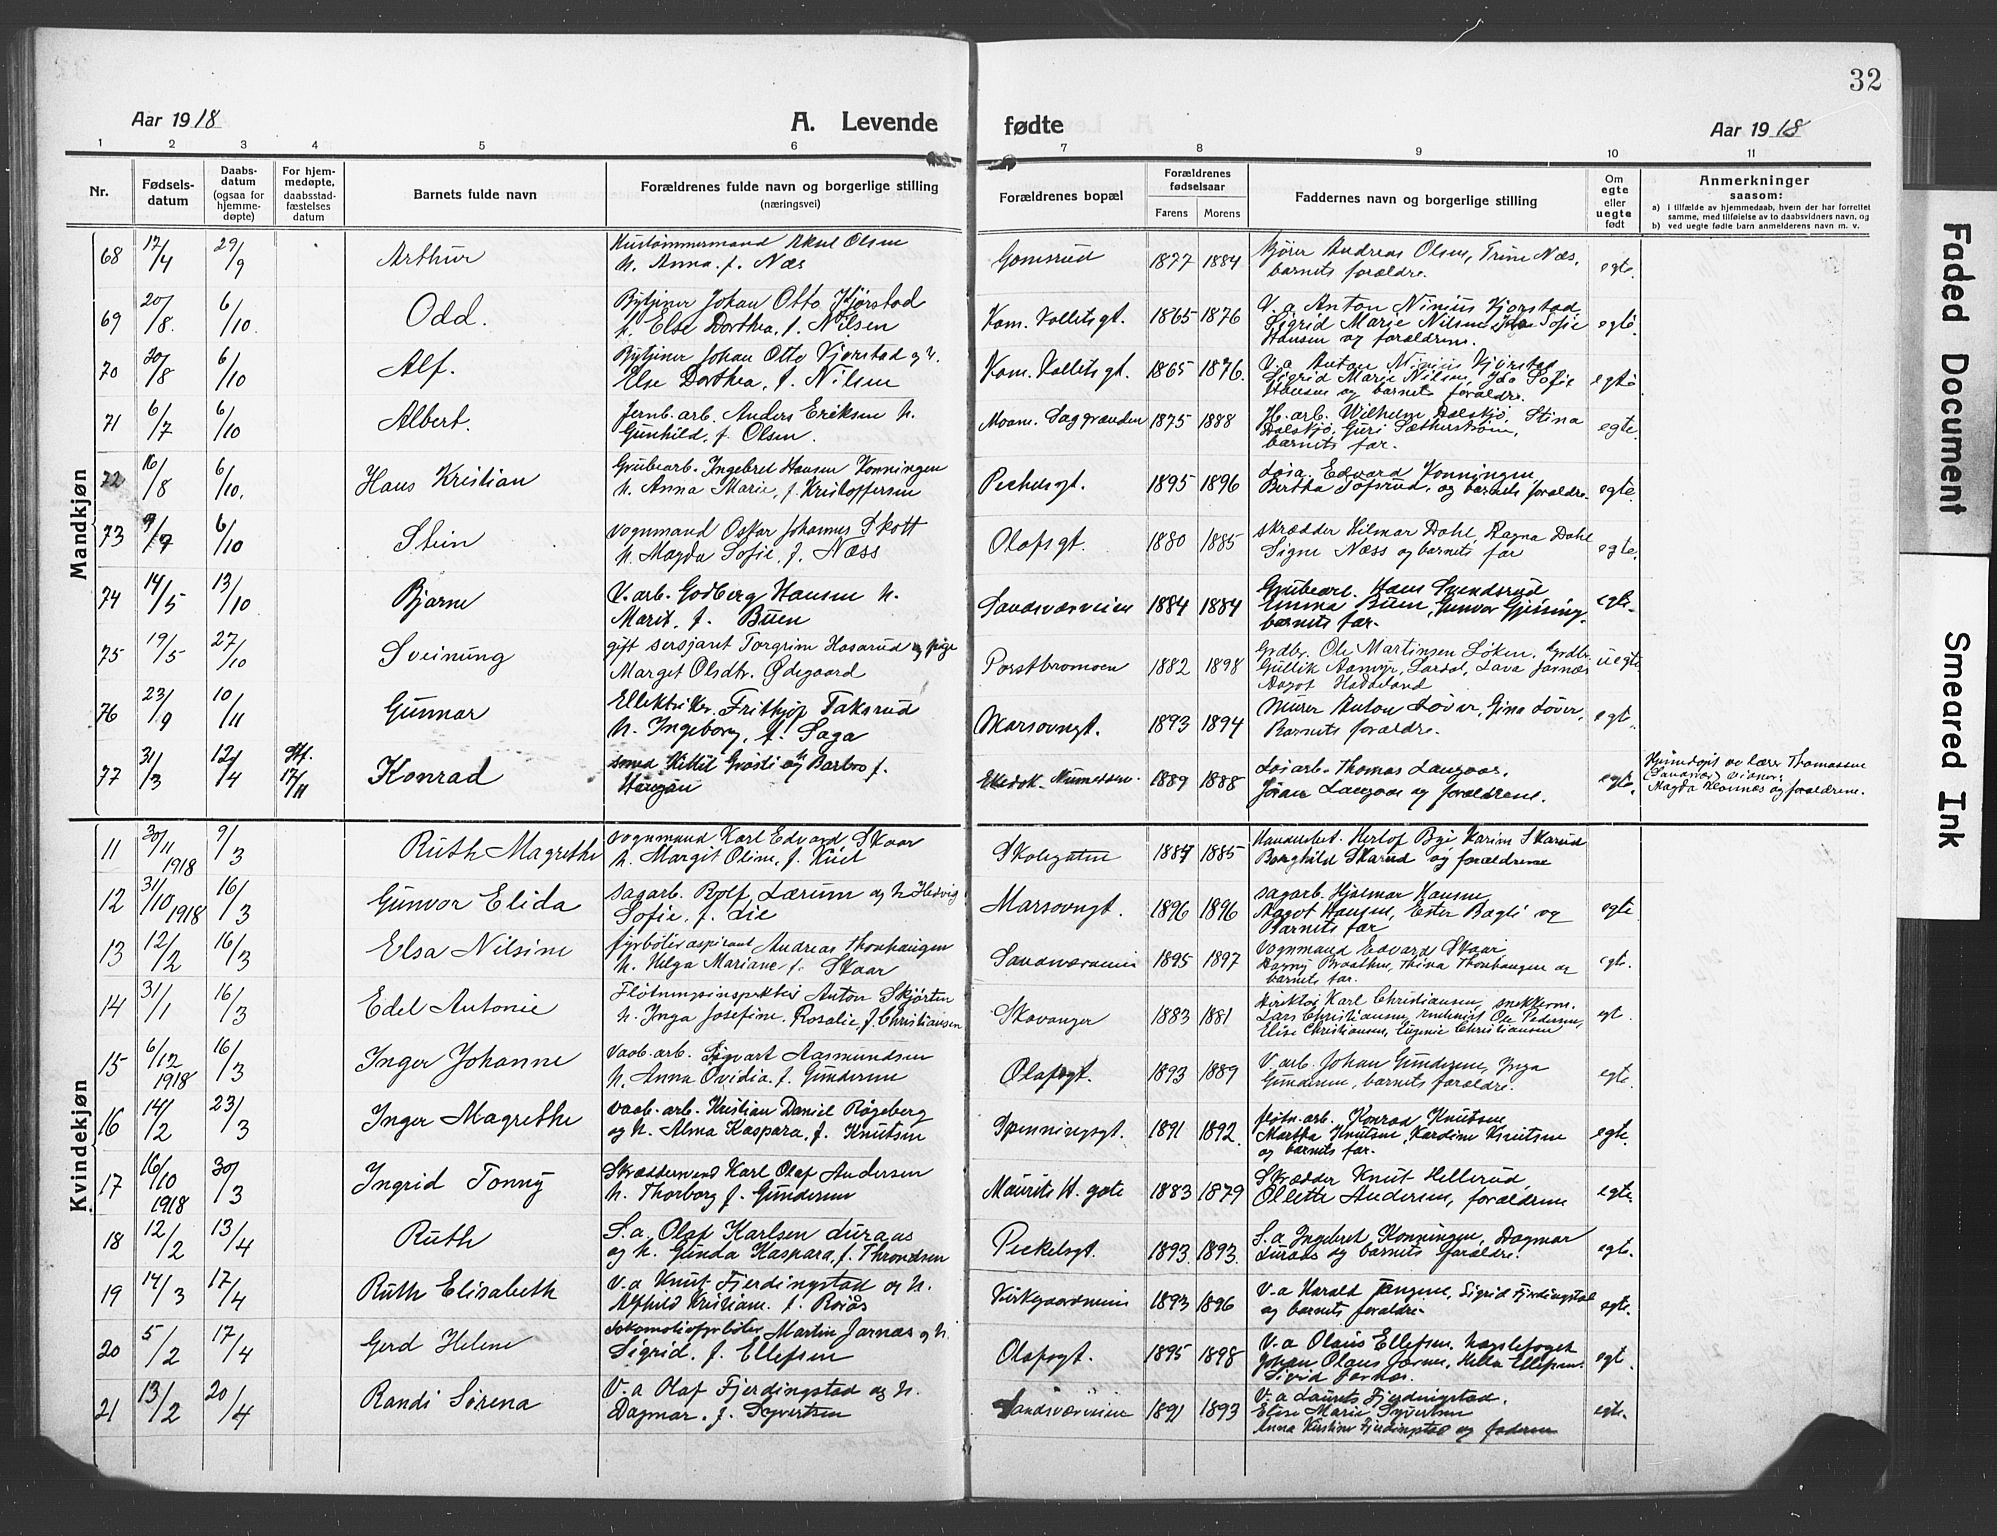 32
Aar 1918
A. Levende
fødte
Aar 1918
1 2 3 4 5 6 7 8 9 10 11
Nr.
Fødsels-
datum
Daabs-
datum
(ogsaa for
hjemme-
døpte)
For hjem-
medøpte,
daabsstad-
fæstelses
datum
Barnets fulde navn
Forældrenes fulde navn og borgerlige stilling
(næringsvei)
Forældrenes bopæl
Forældrenes
fødselsaar
Farens Morens
Faddernes navn og borgerlige stilling
Om
egte
eller
uegte
født
Anmerkninger
saasom:
a) i tilfælde av hjemmedaab, hvem der har forrettet
samme, med tilføielse av to daabsvidners navn, og
b) ved uegte fødte barn anmelderens navn m. v.
Mandkjøn
68 17/4 29/9 Arthur
Olsen
h. Anna f. Næs
Gomsrud 1877 1884
Andreas Olsen, Trine Næs,
barnets forældre.
egte.
69 20/8. 6/10. Odd.
Bytjener Johan Otto Kjørstad
h. Else Dorthea, f. Nilsen
Kom. Kolletsgt. 1865 1876
V. a Anton Kjørstad
Sigrid Marie Nilsen, Sofie
Hansen og forældrene.
egte
70 20/8 6/10 Alf.
Bytjener Johan Otto Kjørstad og h.
Else Dorthea, f. Nilsen
Kom. Kolletsgt. 1865 1876.
V. a Anton Kjørstad
Sigrid Marie Nilsen, Sofie
Hansen og barnets forældre.
egte
71 6/7 6/10 Albert.
Jernb. arb. Anders Eriksen h.
Gunhild, f. Olsen.
1875 1888
H. arb. Wilhelm Stina
Guri
barnets far.
egte.
72 16/8 6/10. Hans Kristian
Grubearb. Ingebret Hansen Konningen
h. Anna Marie, f. Kristoffersen
Pechelsgt. 1895 1896
Edvard Konningen,
Bertha og barnets forældre.
egte.
73 9/9 6/10 Stein
Vognmand Oskar Johannes Skott
h. Magda Sofie, f. Næss
Olafsgt. 1880 1885
skrædder Hilmar Dahl, Ragna Dahl
Signe Næss og barnets far
egte.
74 14/5 13/10 Bjarne
V. arb. Godberg Hansen h.
Marit, f. Buen
Sandsværveien 1884 1884
Grubearb. Hans Svendsrud,
Emma Buen, Gunvor
barnets far.
egte.
75 19/5 27/10 Sveinung
gift sersjant Torgrim Hasarud og pige
Margit Olsdtr. Ødegaard
Porstbromoen 1882 1898
Grdbr. Ole Martinsen Løken, Grdbr.
Gullik Jarnæs
Aagot Haddeland
uegte
76 23/9 10/11 Gunnar
Elektriker Frithjof Taksrud
h. Ingeborg, f. Saga
Marsovngt. 1893 1894
Murer Anton Løver, Gina Løver,
Barnets forældre.
egte.
77 31/3 12/4 17/11 Konrad
smed Kittil og Barbro f.
1889 1888
arb. Thomas Langaas,
Langaas og forældrene.
egte.
Hjemdøpt av lærer Thomassen
Magda og forældrene.
Kvindekjøn
11 30/11 1918 9/3 Ruth Magrethe
Vognmand Karl Edvard Skaar
h. Margit Oline, f.
Skolegaten 1887 1885
Herlof Bye Karin Skarud
Borghild Skarud og forældrene
12 31/10 1918 16/3 Gunvor Elida
Sagarb. Rolf Lærum og h. Hedvig
Sofie, f. Lie
Marsovngt. 1896 1896
Sagarb. Hjalmar Hansen,
Aagot Hansen, Ester og
Barnets far
egte
13 12/2 16/3 Elsa Nilsine
fyrbøteraspirant Andreas Thonhaugen
h. Helga Mariane f. Skaar
Sandsværveien 1895 1897
Vognmand Edvard Skaar
Braathen, Thina Thonhaugen og
barnets far.
egte.
14 31/1 16/3 Edel Antonie
Fløtningsinspektør Anton Skjørten
h. Inga Josefine Rosalie f. Christiansen
Skavanger 1883 1881
Direktør Karl Christiansen, snekkerm.
Lars Christiansen, Ole Pedersen,
Elise Christiansen, Eugenie Christiansen
egt.
15 6/12 1918 16/3 Inger Johanne
Vaab. arb. Sigvart Aasmundsen
h. Anna Ovidia f. Gundersen
Olafsgt. 1893 1889
V. arb. Johan Gundersen, Inga
Gundersen, barnets forældre.
egte.
16 14/2 23/3 Inger Magrethe
Vaab. arb. Kristian Daniel Røgeberg
og h. Alma Kaspara, f. Knutsen
Spenningsgt. 1891 1892.
fløtn. arb. Konrad Knutsen
Martha Knutsen, Kardine Knutsen
og barnets far.
egte.
17 16/10 1918 30/3 Ingrid Tonny
Skræddersvend Karl Olaf Andersen
h. Thorborg f. Gundersen
Maurits H. gate 1883 1879
Skrædder Knut Hellerud,
Olette Andersen, forældrene
egte.
18 12/2 13/4 Ruth
S. a. Olaf Karlsen Luraas
og h. Gunda Kaspara, f. Throndsen
Peckelsgt. 1893. 1893.
S. a Ingebret Konningen, Dagmar
Luraas og barnets forældre.
egte.
19 14/3 17/4 Ruth Elisabeth
V. a Knut Fjerdingstad og h.
Alfhild Kristiane, f. Roiås
Kirkegaardsveien 1893 1896
V. a Harald Tangene, Sigrid Fjerdingstad
og barnets forældre.
egte.
20 5/2 17/4 Gerd Helene
Lokomotivfyrbøter Martin Jarnæs og h.
Sigrid, f. Ellefsen
Olafsgt. 1895 1898
V. a Olaus Ellefsen,
Johan Olaus Hella Ellefsen
Jarnæs.
egt.
21 13/2 20/4 Randi Sørena
V. a Olaf Fjerdingstad og h.
Dagmar, f. Syvertsen
Sandsværveien 1891 1893
V. a Laurits Fjerdingstad,
Elise Marie Syvertsen
Anna Kirstine Fjerdingstad og faderen
egte.
Faded Document
Smeared Ink